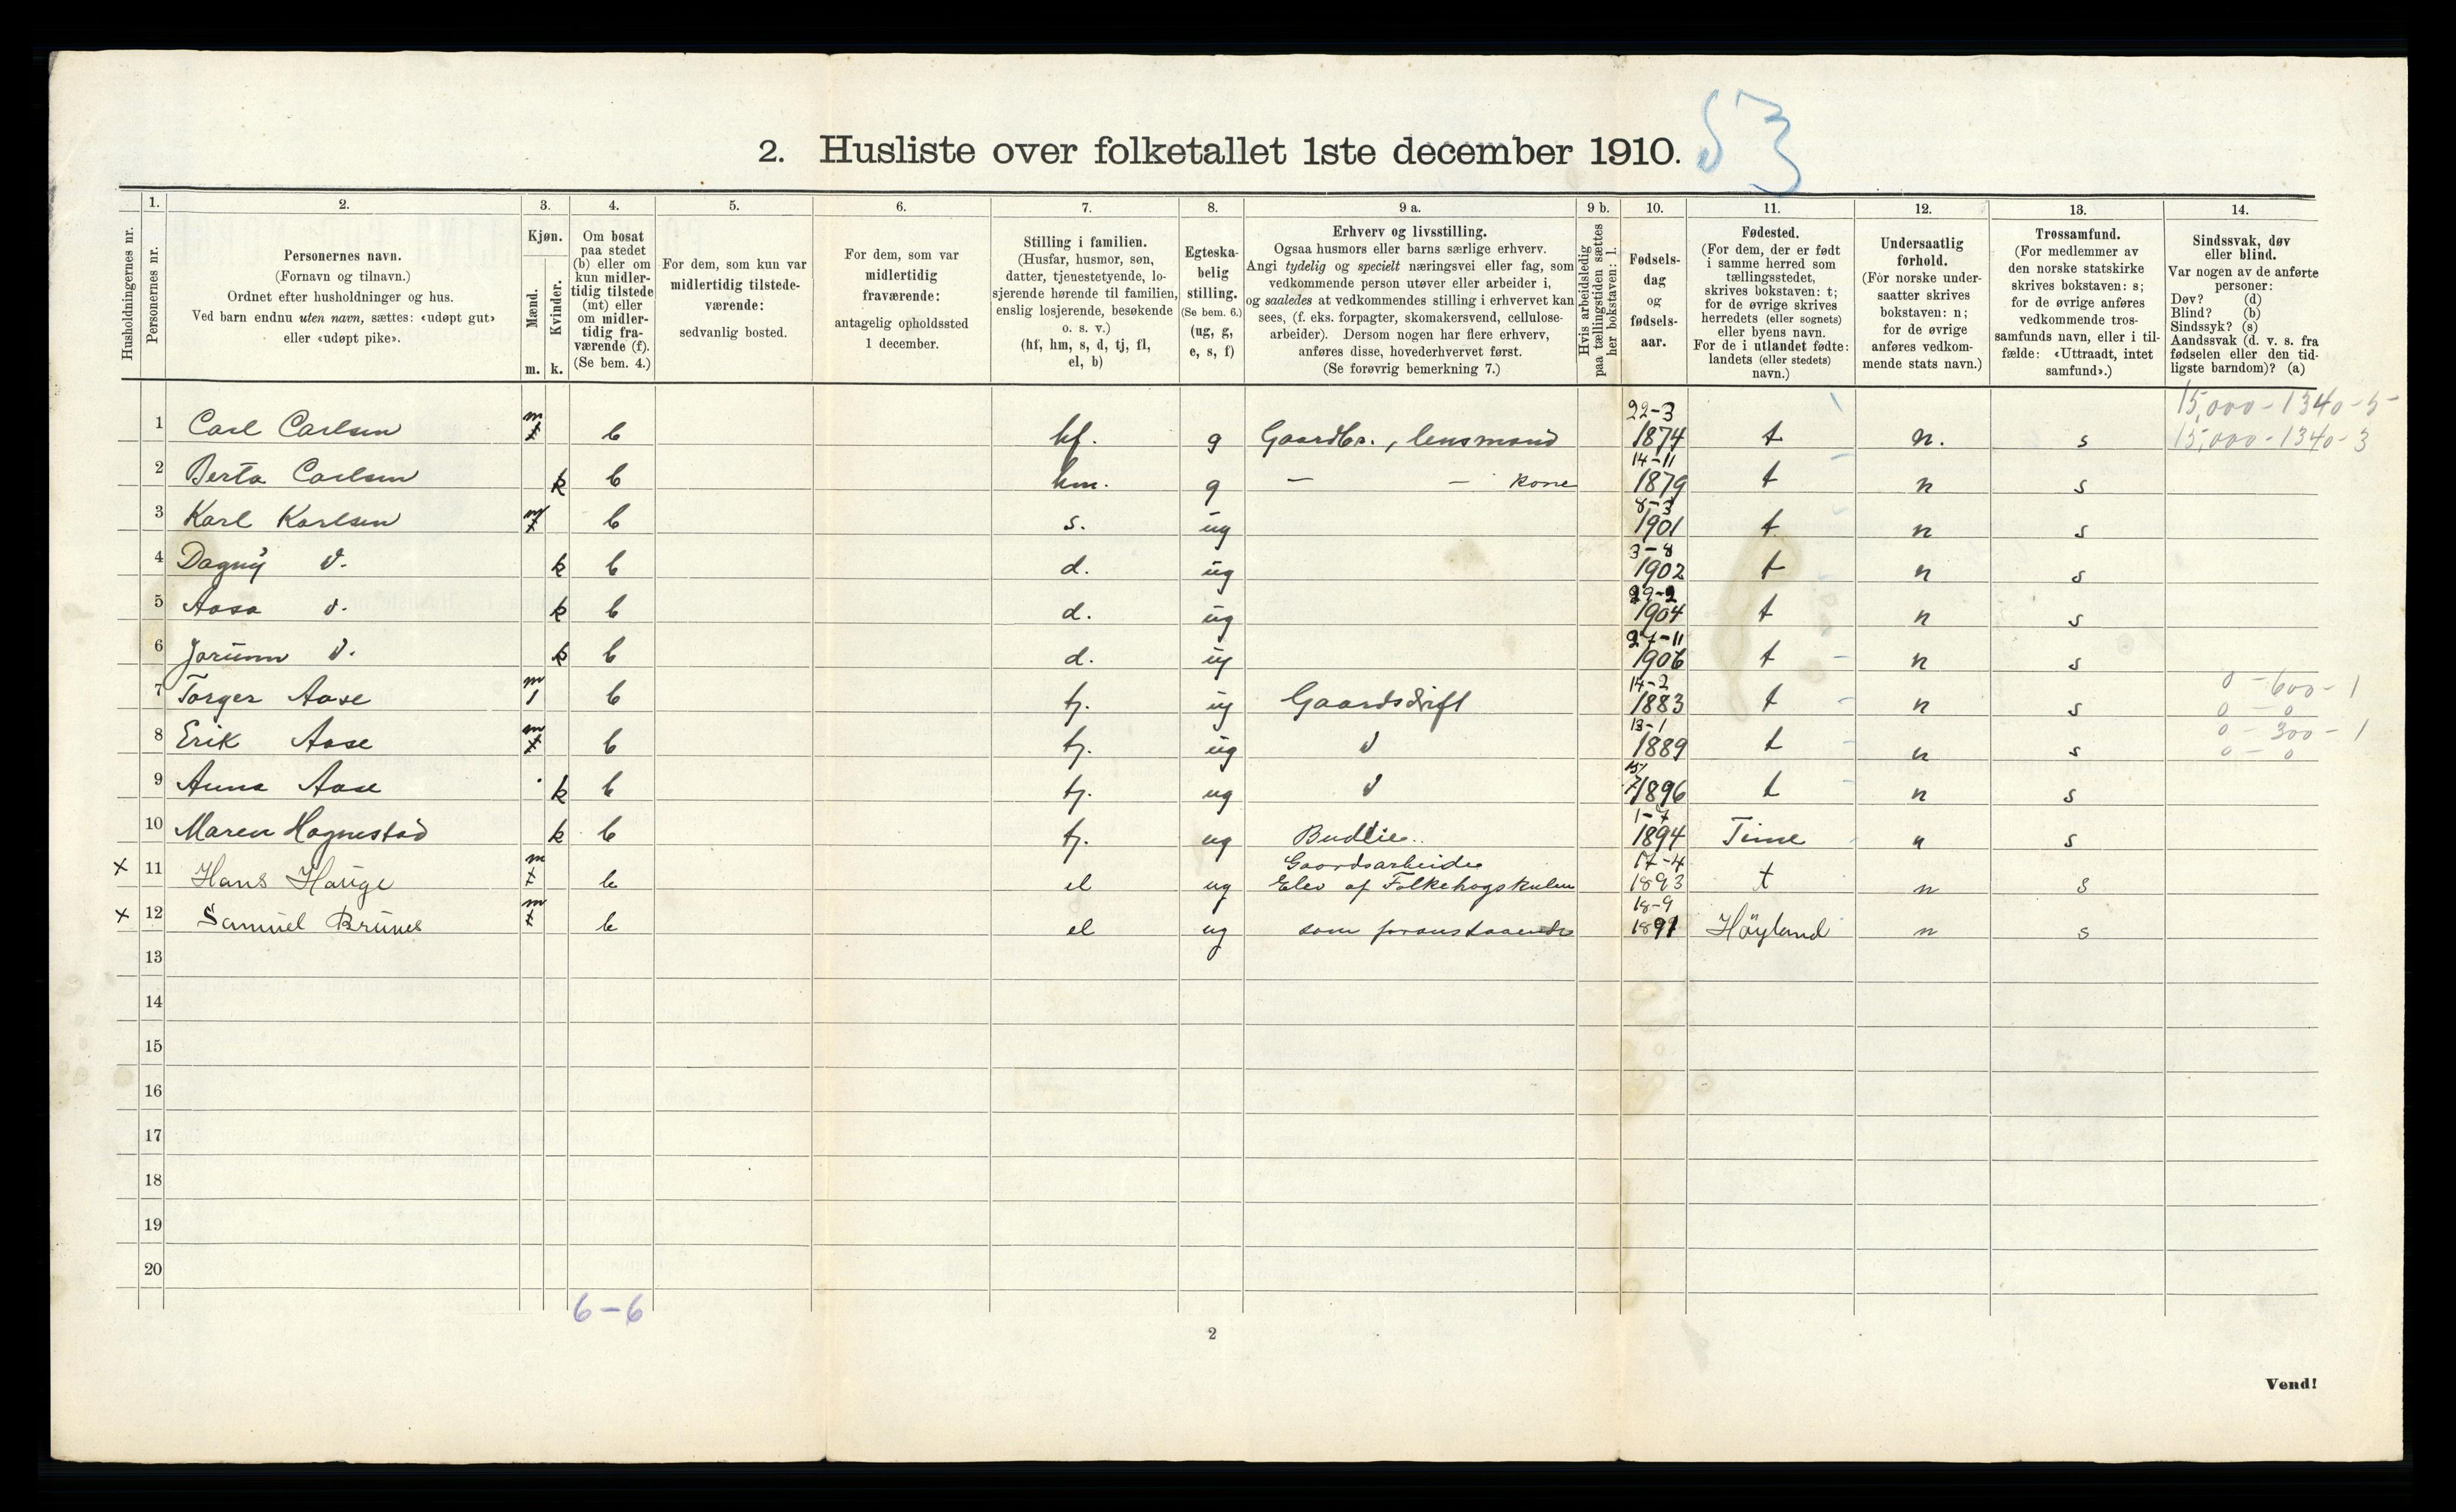 2. Husliste over folketallet 1ste december 1910. 53
Husholdningernes nr.
1.
Personernes nr.
2.
Personernes navn.
(Fornavn og tilnavn.)
Ordnet efter husholdninger og hus.
Ved barn endnu uten navn, sættes: «udøpt gut»
eller «udøpt pike».
3.
Kjøn.
Mænd.
Kvinder.
m. k.
4.
Om bosat
paa stedet
(b) eller om
kun midler-
tidig tilstede
(mt) eller
om midler-
tidig fra-
værende (f).
(Se bem. 4.)
5.
For dem, som kun var
midlertidig tilstede-
værende:
sedvanlig bosted.
6.
For dem, som var
midlertidig
fraværende:
antagelig opholdssted
1 december.
7.
Stilling i familien.
(Husfar, husmor, søn,
datter, tjenestetyende, lo-
sjerende hørende til familien,
enslig losjerende, besøkende
o. s. v.)
(hf, hm, s, d, tj, fl,
el, b)
8.
Egteska-
belig
stilling.
(Se bem. 6.)
(ug, g,
e, s, f)
9 a.
Erhverv og livsstilling.
Ogsaa husmors eller barns særlige erhverv.
Angi tydelig og specielt næringsvei eller fag, som
vedkommende person utøver eller arbeider i,
og saaledes at vedkommendes stilling i erhvervet kan
sees, (f. eks. forpagter, skomakersvend, cellulose-
arbeider). Dersom nogen har flere erhverv,
anføres disse, hovederhvervet først.
(Se forøvrig bemerkning 7.)
9 b.
Hvis arbeidsledig
paa tællingstiden sættes
her bokstaven: l.
10.
Fødsels-
dag
og
fødsels-
aar.
11.
Fødested.
(For dem, der er født
i samme herred som
tællingsstedet,
skrives bokstaven: t;
for de øvrige skrives
herredets (eller sognets)
eller byens navn.
For de i utlandet fødte:
landets (eller stedets)
navn.)
12.
Undersaatlig
forhold.
(For norske under-
saatter skrives
bokstaven: n;
for de øvrige
anføres vedkom-
mende stats navn.)
13.
Trossamfund.
(For medlemmer av
den norske statskirke
skrives bokstaven: s;
for de øvrige anføres
vedkommende tros-
samfunds navn, eller i til-
fælde: «Uttraadt, intet
samfund».)
14.
Sindssvak, døv
eller blind.
Var nogen av de anførte
personer:
Døv? (d)
Blind? (b)
Sindssyk? (s)
Aandssvak (d. v. s. fra
fødselen eller den tid-
ligste barndom)? (a)
15,000 - 1340 - 5 -
1 Carl Carlsen m x b hf. g Gaardbr., lensmand 22-3 1874 t n. s 15,000 - 1340 - 3
2 Berta Carlsen k b hm. g — — kone 14-11 1879 t n s
3 Karl Karlsen m x b s. ug 8-3 1901 t n s
4 Dagny d. k b d. ug 3-8 1902 t n s
5 Aasa d. k b d. ug 29-2 1904 t n s
6 Jorunn d. k b d. ug 27-11 1906 t n s
7 Torger Aase m 1 b tj. ug Gaardsdrift 14-2 1883 t n s 0 - 600 - 1
0 - 0
8 Erik Aase m x b tj. ug d 13-1 1889 t n s 0 - 300 - 1
0 - 0
9 Anna Aase k b tj. ug d 15/7 1896 t n s
10 Maren Hognestad k b tj. ug Budeie. 1-7 1894 Time n s
x 11 Hans Hauge m x b el ug Gaardsarbeider
Elev af Folkehøgskulen 17-4 1893 t n s
x 12 Samuel Brunes m x b el ug som foranstaaende 18-9 1891 Höyland n s
13
14
15
16
17
18
19
20
6-6
2
Vend!